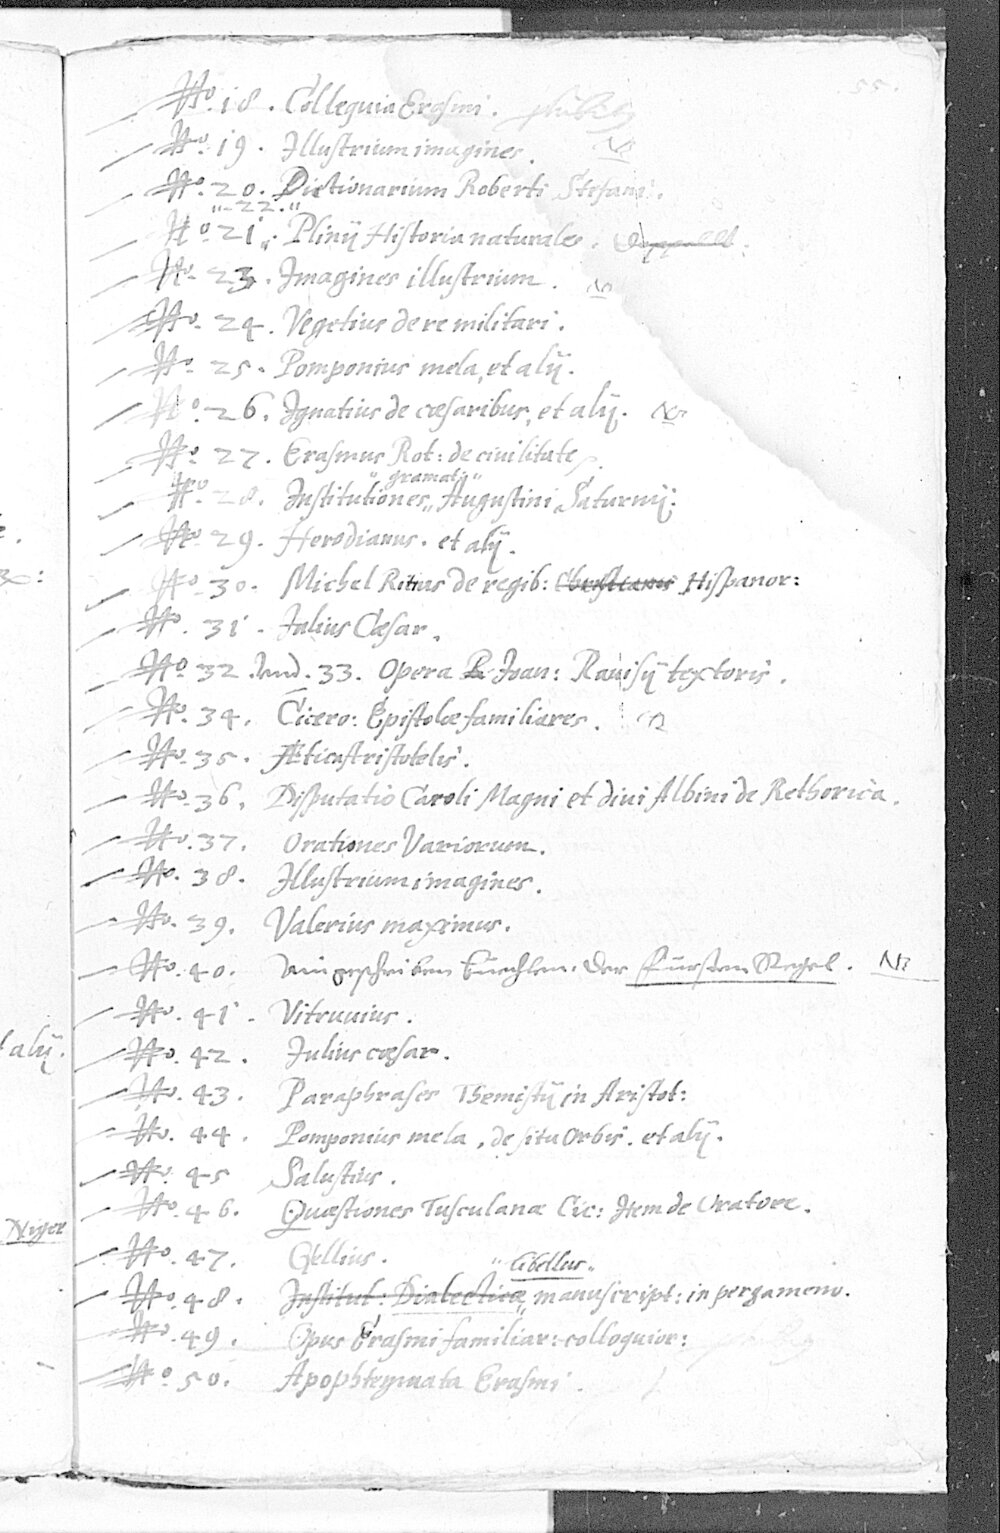 55.
No. 18. Colloquia Erasmi.
No. 19. Illustrium imagines. NB
No. 20. Dictionarium Roberti Stefani.
"-22."
No. 21. Plinij Historia naturalis. Doppellt.
No. 23. Imagines illustrium. NB
No. 24. Vegetius de re militari.
No. 25. Pomponius mela, et alij.
No. 26. Ignatius de cæsaribus, et alij. NB
No. 27. Erasmus Rot: de ciuilitate
"gramat:"
No. 28. Institutiones, Augustini Saturnij:
No. 29. Herodianus. et alij.
No. 30. Michel Ritius de regib: Hispanor:
No. 31. Julius Cæsar.
No. 32. vnd. 33. Opera Joan: Rauisij textoris.
No. 34. Cicero: Epistolæ familiares.
No. 35. Æticastristotelis.
No. 36. Disputatio Caroli Magni et diui Albini de Rethorica.
No. 37. Orationes Variorum.
No. 38. Illustrium imagines.
No. 39. Valerius maximus.
No. 40. ain geschriben buechlen. der fürsten Regel. NB
No. 41. Vitruuius.
No. 42. Julius cæsar.
No. 43. Paraphrases Themistij in Aristot:
No. 44. Pomponius mela, de situ Orbis. et alij.
No. 45 Salustius.
No. 46. Quæstiones Tusculanæ Cic: Item de Oratore.
No. 47. Gellius.
"libellus"
No. 48. Institut: Dialecticæ, manuscript: in pergameno.
No. 49. Opus Erasmi familiar: colloquior:
No. 50. Apophtegmata Erasmi.
alij.
Niger